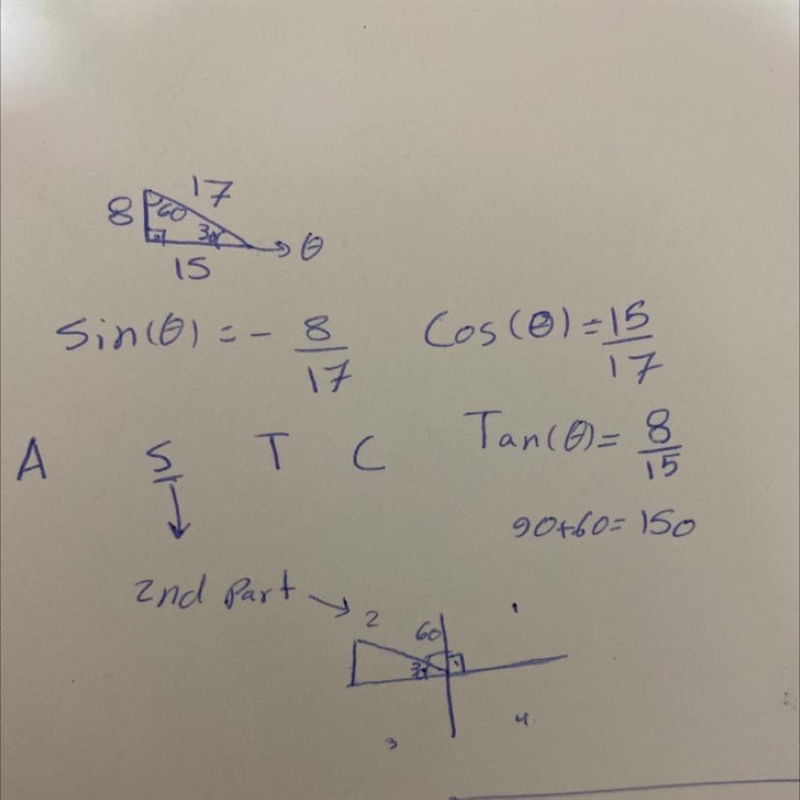 17
8 60
30 → θ
15
Sin(θ) = - 8/17
Cos(θ) = 15/17
A S T C
Tan(θ) = 8/15
90+60= 150
2nd Part →
2 60 1
30
3 4